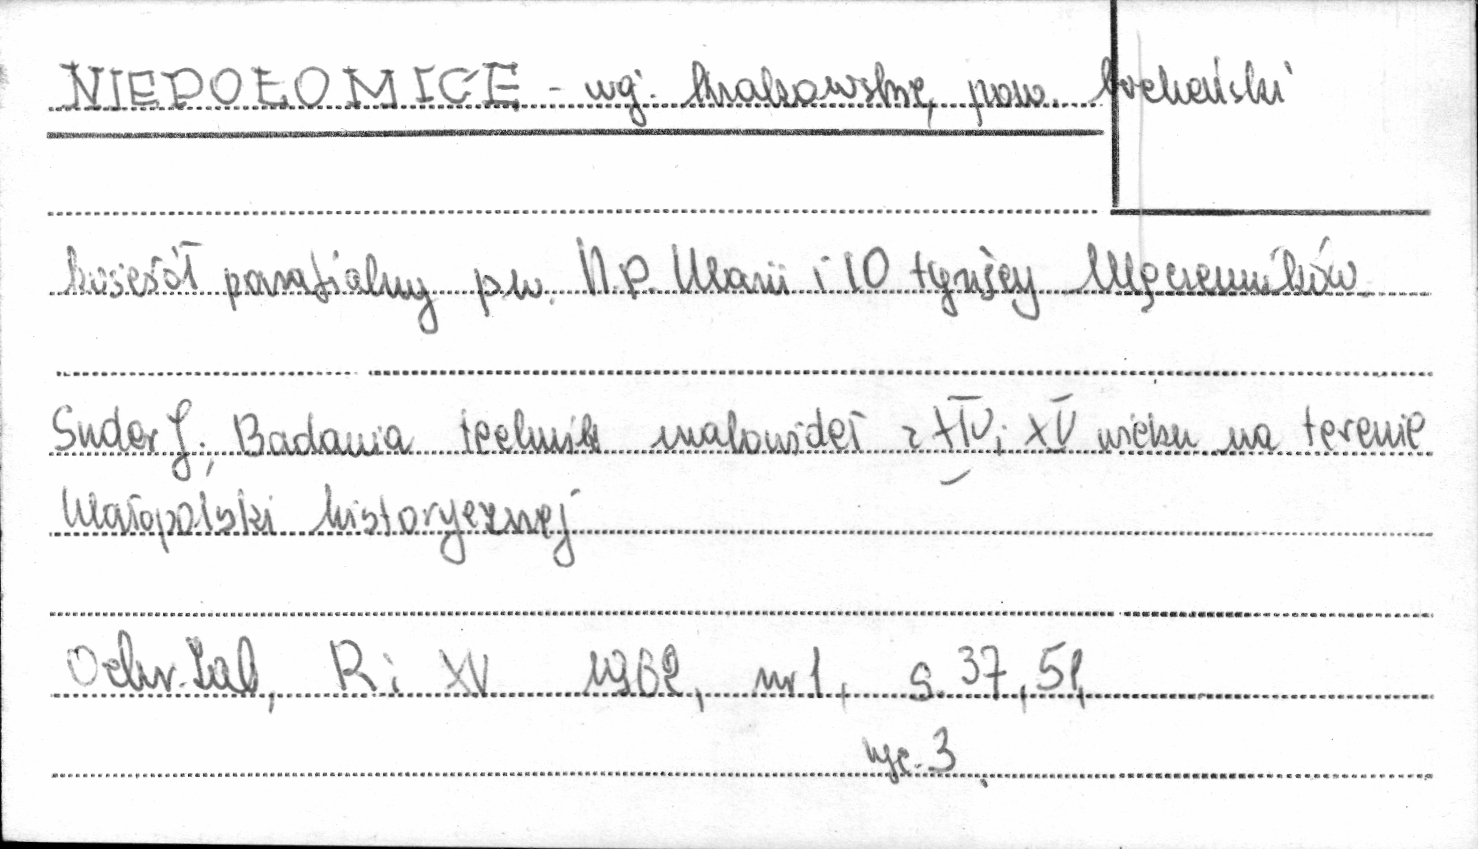 NIEPOŁOMICE - woj. krakowskie, pow. bocheński
kościół parafialny p.w. N.P. Marii i 10 tysięcy Męczenników
Suder J., Badania technik malowideł z XIV i XV wieku na terenie
Małopolski historycznej
Ochr. Zab, R: XV 1962, nr 1, s. 37, 51,
ryc. 3.